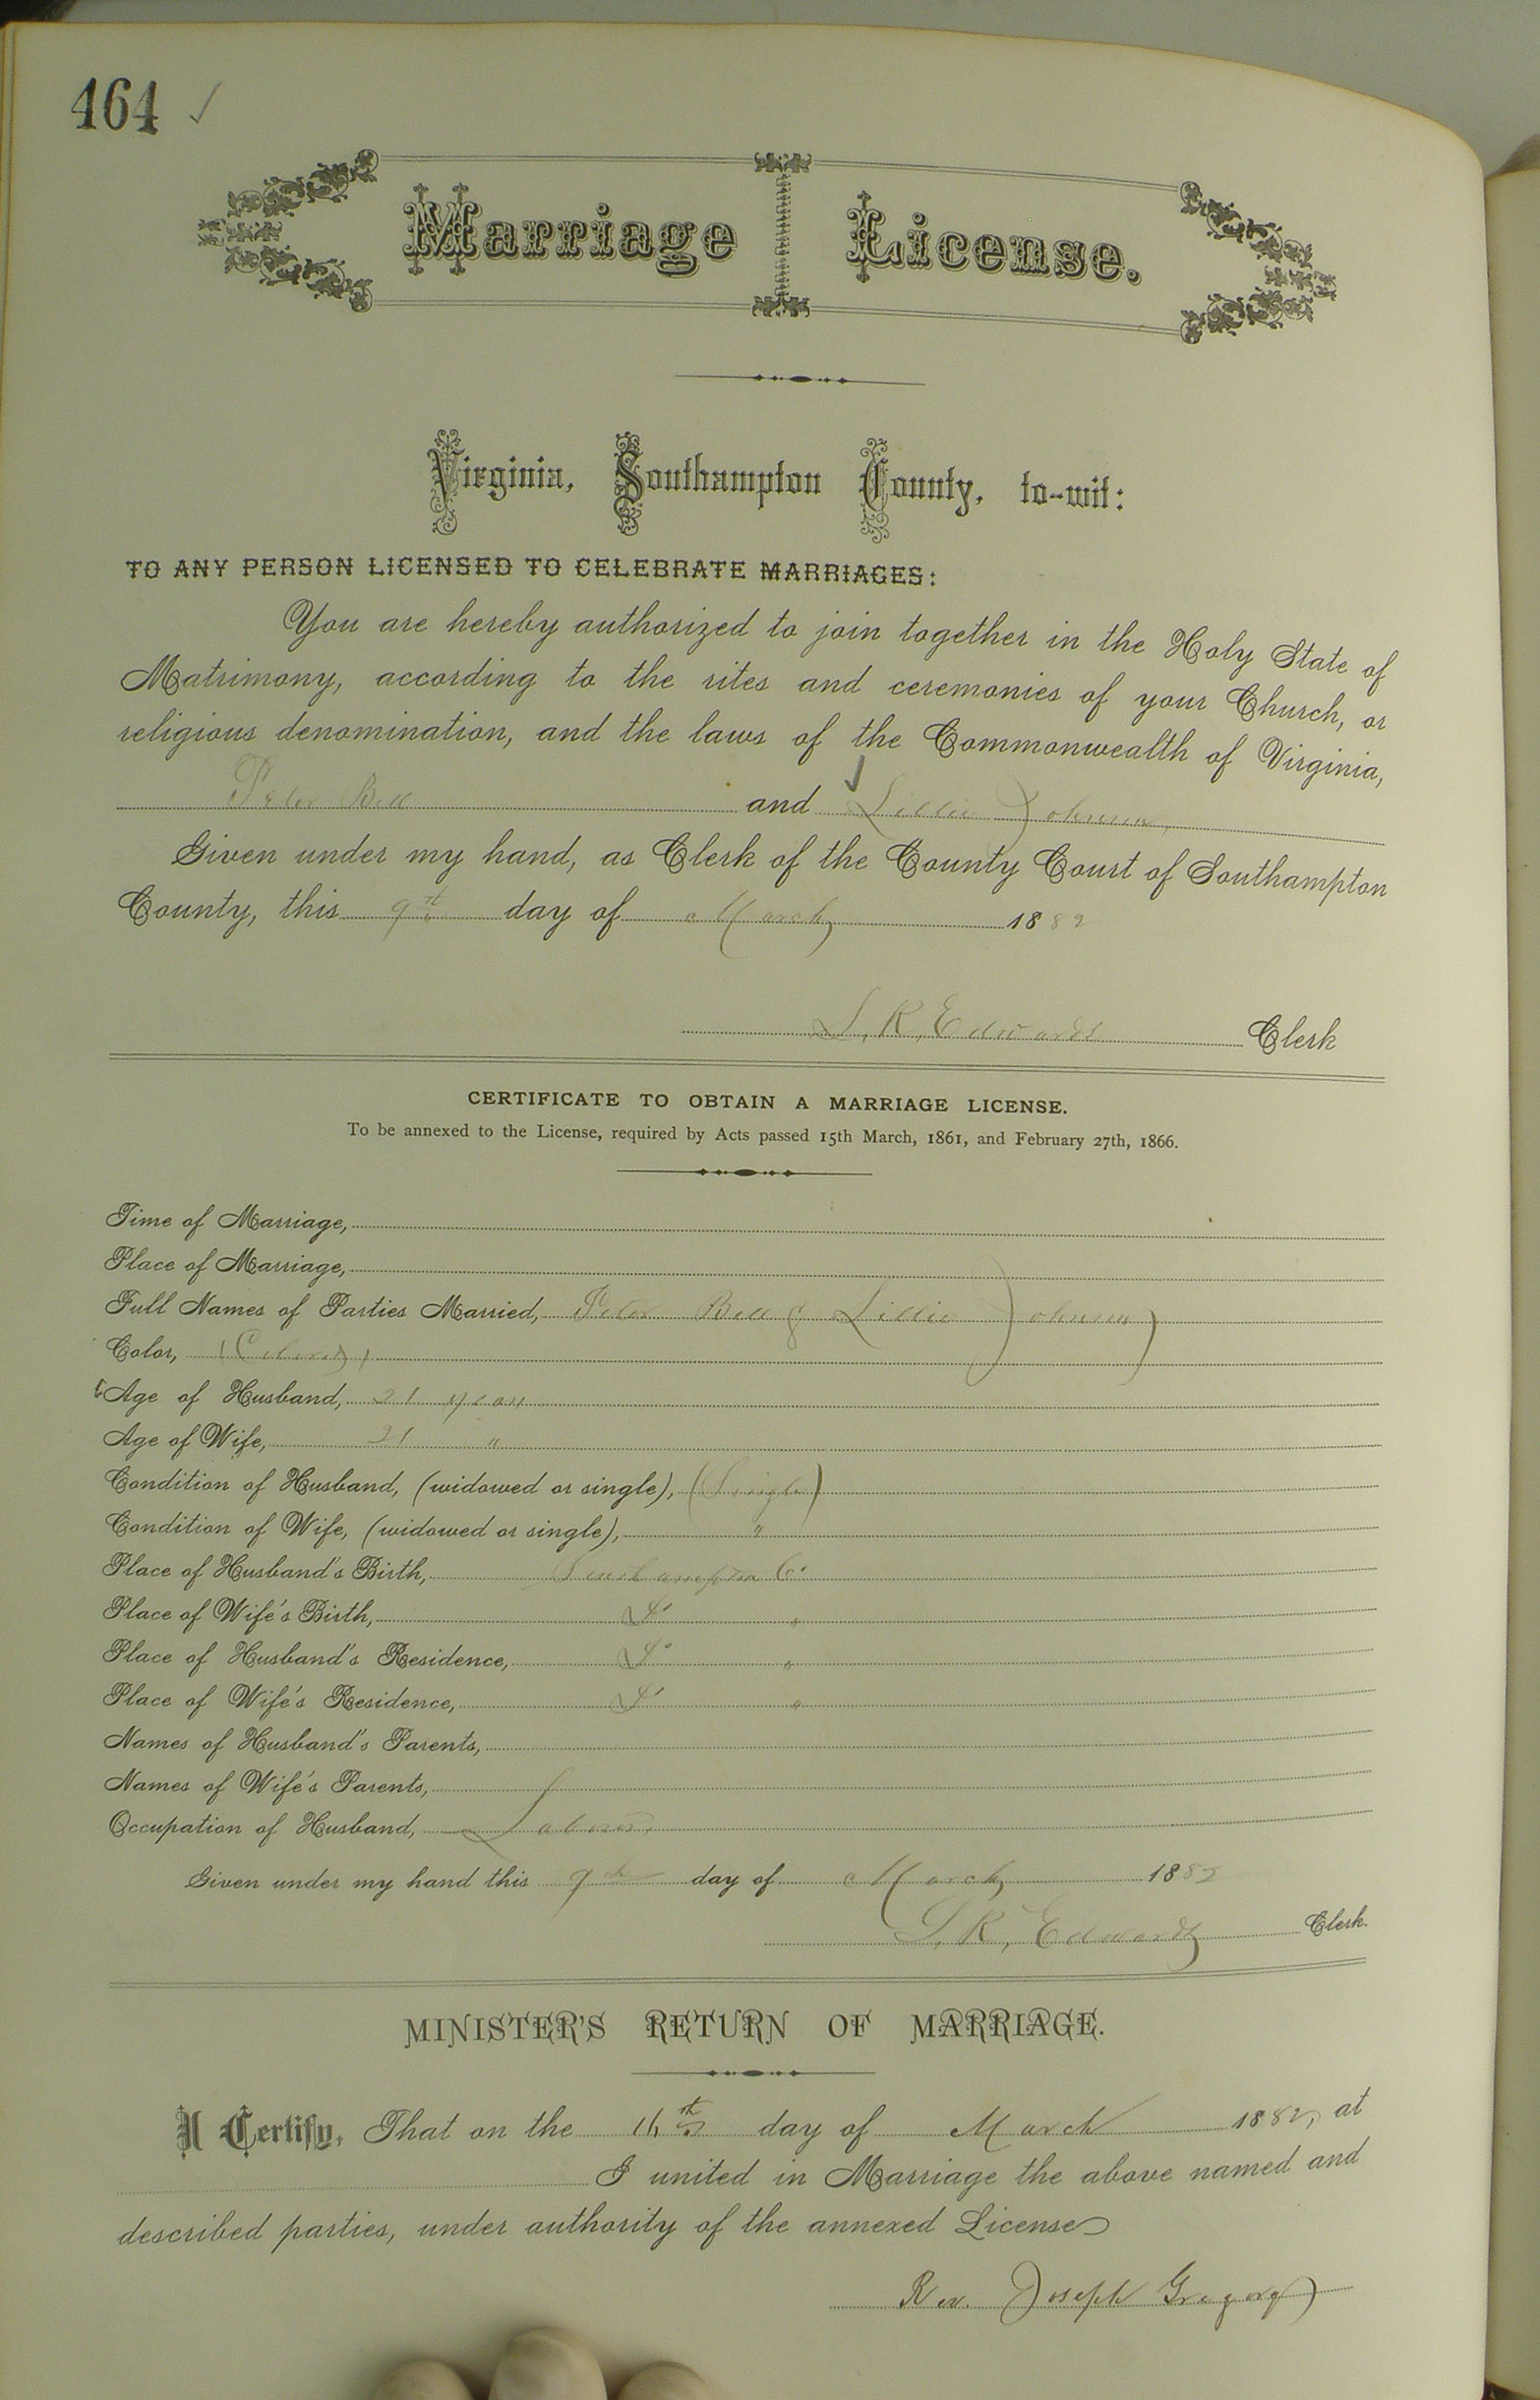 464 ✓
Marriage License.
Virginia, Southampton County, to-wit:
TO ANY PERSON LICENSED TO CELEBRATE MARRIAGES:
You are hereby authorized to join together in the Holy State of
Matrimony, according to the rites and ceremonies of your Church, or
religious denomination, and the laws of the Commonwealth of Virginia,
Peter Bell and Lillie Johnson,
Given under my hand, as Clerk of the County Court of Southampton
County, this 9th day of March 1882
L. R. Edwards Clerk
CERTIFICATE TO OBTAIN A MARRIAGE LICENSE.
To be annexed to the License, required by Acts passed 15th March, 1861, and February 27th, 1866.
Time of Marriage,
Place of Marriage,
Full Names of Parties Married, Peter Bell & Lillie Johnson
Color, (Colored)
Age of Husband, 21 years
Age of Wife, 21 "
Condition of Husband, (widowed or single), (Single)
Condition of Wife, (widowed or single), "
Place of Husband's Birth, Southampton Co
Place of Wife's Birth, Do "
Place of Husband's Residence, Do "
Place of Wife's Residence, Do "
Names of Husband's Parents,
Names of Wife's Parents,
Occupation of Husband, Laborer
Given under my hand this 9th day of March 1882
L. R. Edwards Clerk.
MINISTER'S RETURN OF MARRIAGE.
I Certify, That on the 16th day of March 1882, at
I united in Marriage the above named and
described parties, under authority of the annexed License
Rev. Joseph Gregory